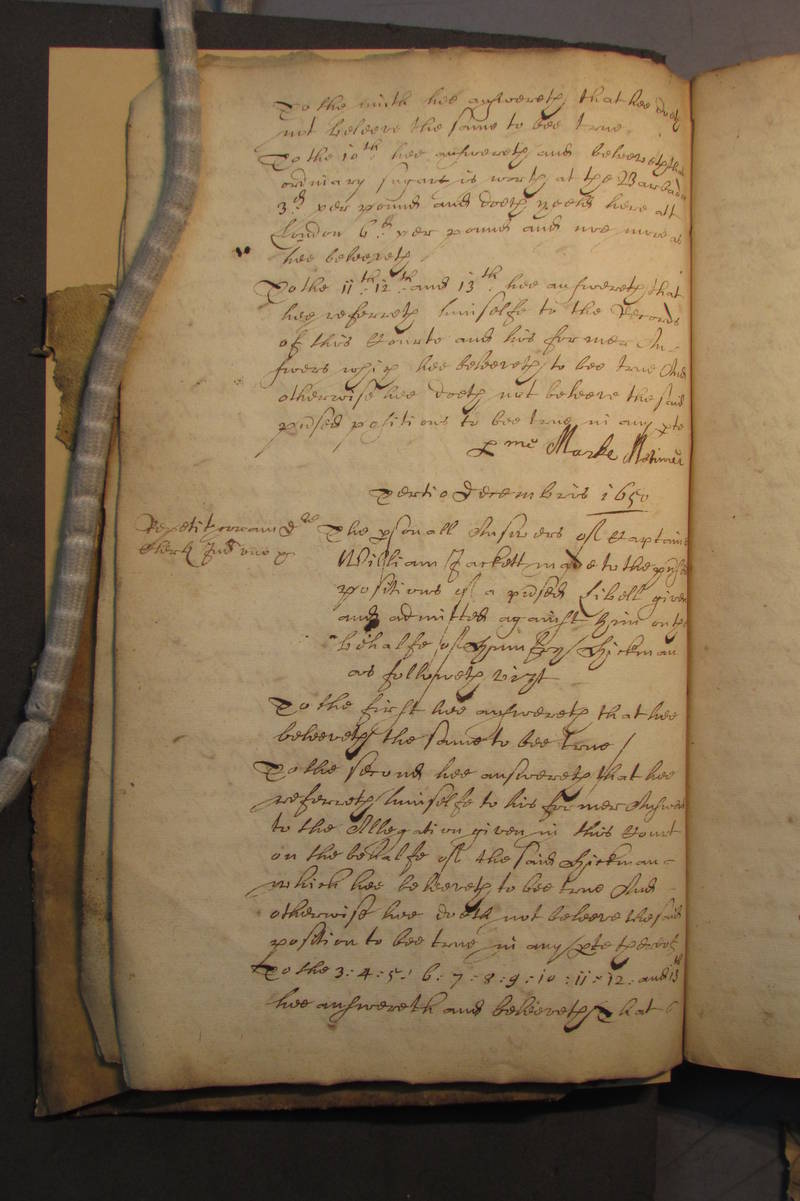 To the ninth hee answereth that hee doeth
not beleeve the same to bee true.
To the 10th hee answereth and beleeveth that
ordinary sugars is worth at the Barbados
3d per pound and doeth yeeld here att
London 6d per pound and noe more as
hee beleeveth
To the 11th: 12th: and 13th hee answereth that
hee referreth himselfe to the Records
of this Courte and his former An-
swers which hee beleeveth to bee true And
otherwise hee doeth not beleeve the said
prsed positions to bee true in any pte
p me Marke
Tertio Decembris 1650
Repetit coram
The psonall Answers of Captaine
William Jackett made to the
positions of a prsed Libell given
and admitted against him on the
behalfe of Humfry Hickman
as followeth vizt
To the first hee answereth that hee
beleeveth the same to bee true /
To the second hee answereth that hee
referreth himselfe to his former Answer
to the Allegation given in this Court
on the behalfe of the said Hickman-
which hee beleeveth to bee true And
otherwise hee doeth not beleeve the said
position to bee true in any pte thereof
To the 3: 4: 5: 6: 7: 8: 9: 10: 11: 12: and 13th
hee answereth and beleeveth that